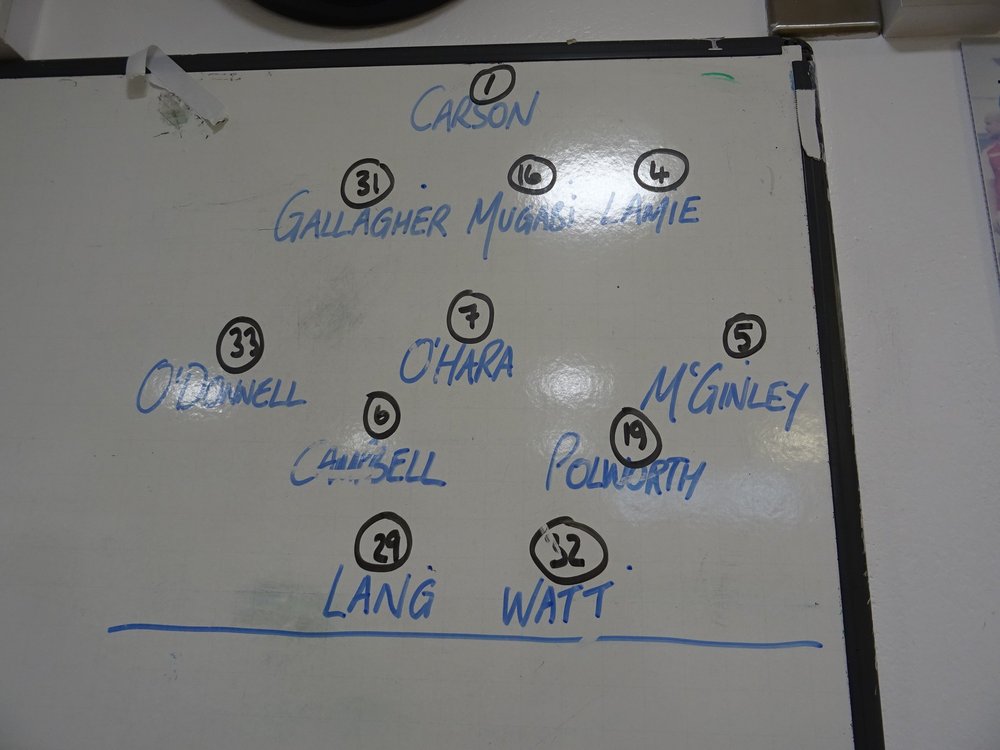 1
CARSON
31 16 4
GALLAGHER MUGABi LAMIE
33 7 5
O'DONNELL O'HARA McGINLEY
6 19
CAMPBELL POLWORTH
29 32
LANG WATT